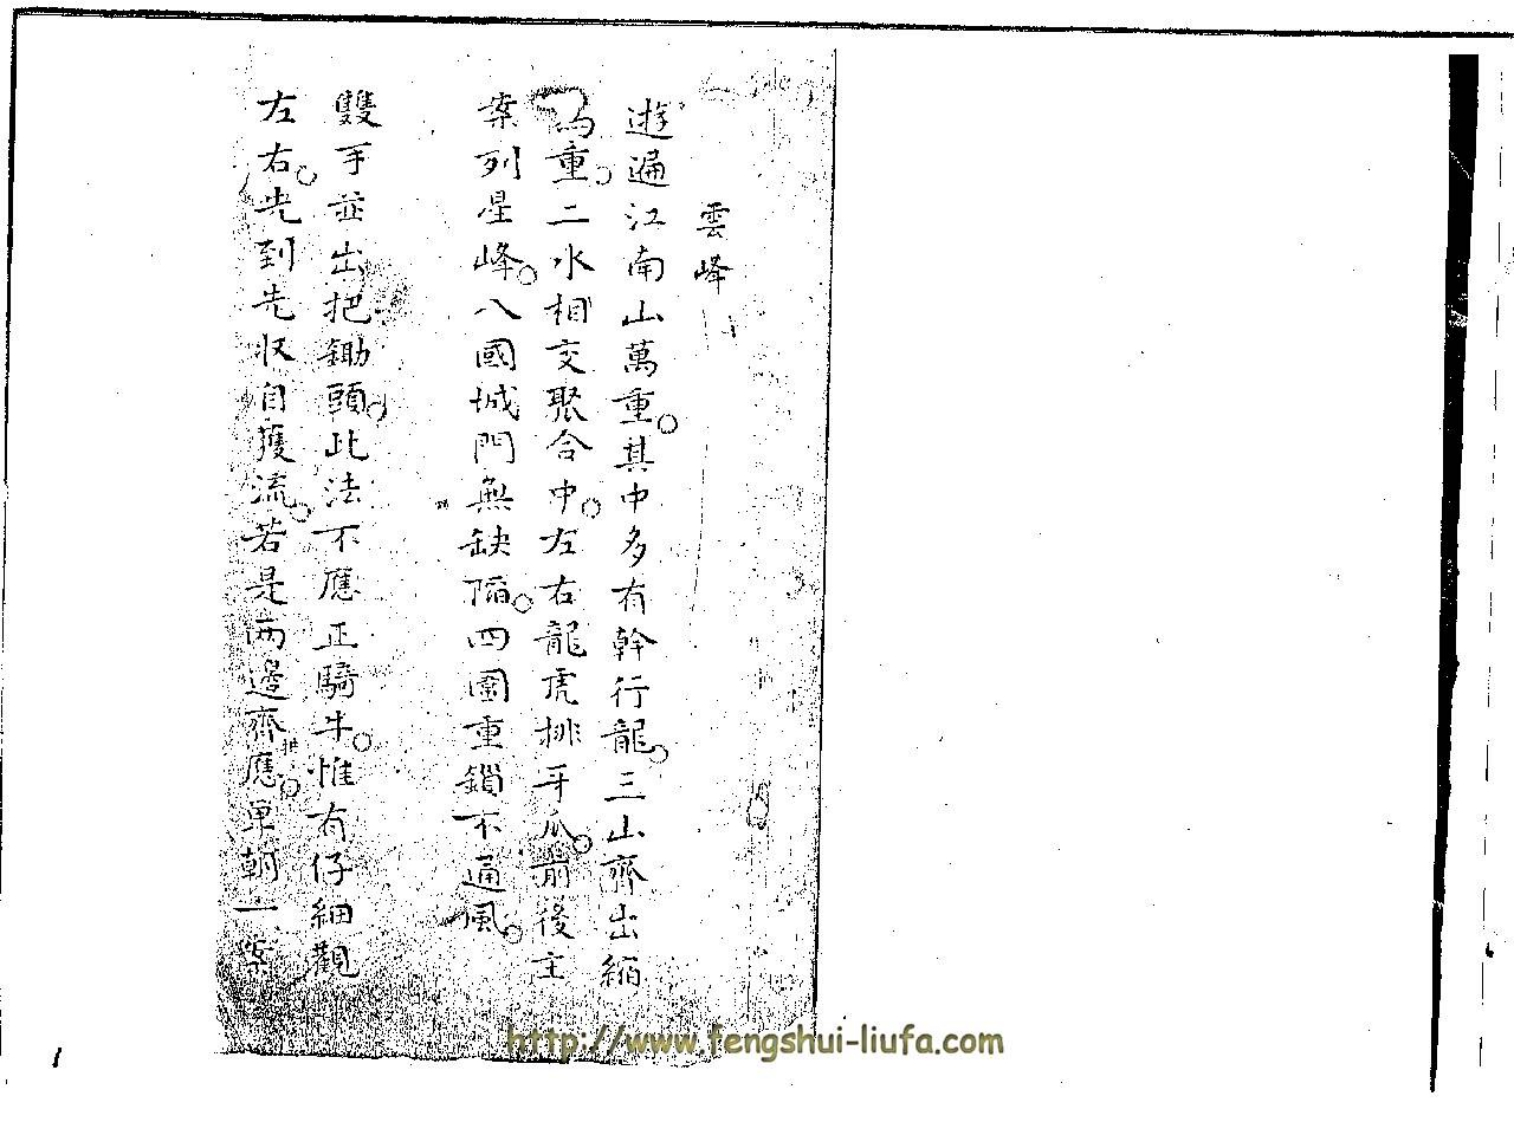 雲峰
遊遍江南山萬重。其中多有幹行龍。三山齊出縮
為重。二水相交聚合中。左右龍虎排牙爪。前後主
案列星峰。八國城門無缺陷。四圍重鎖不通風。
雙手並出把鋤頭。此法不應正騎牛。惟有仔細觀
左右。先到先收自獲流。若是兩邊齊應。單朝一案
http://www.fengshui-liufa.com
1